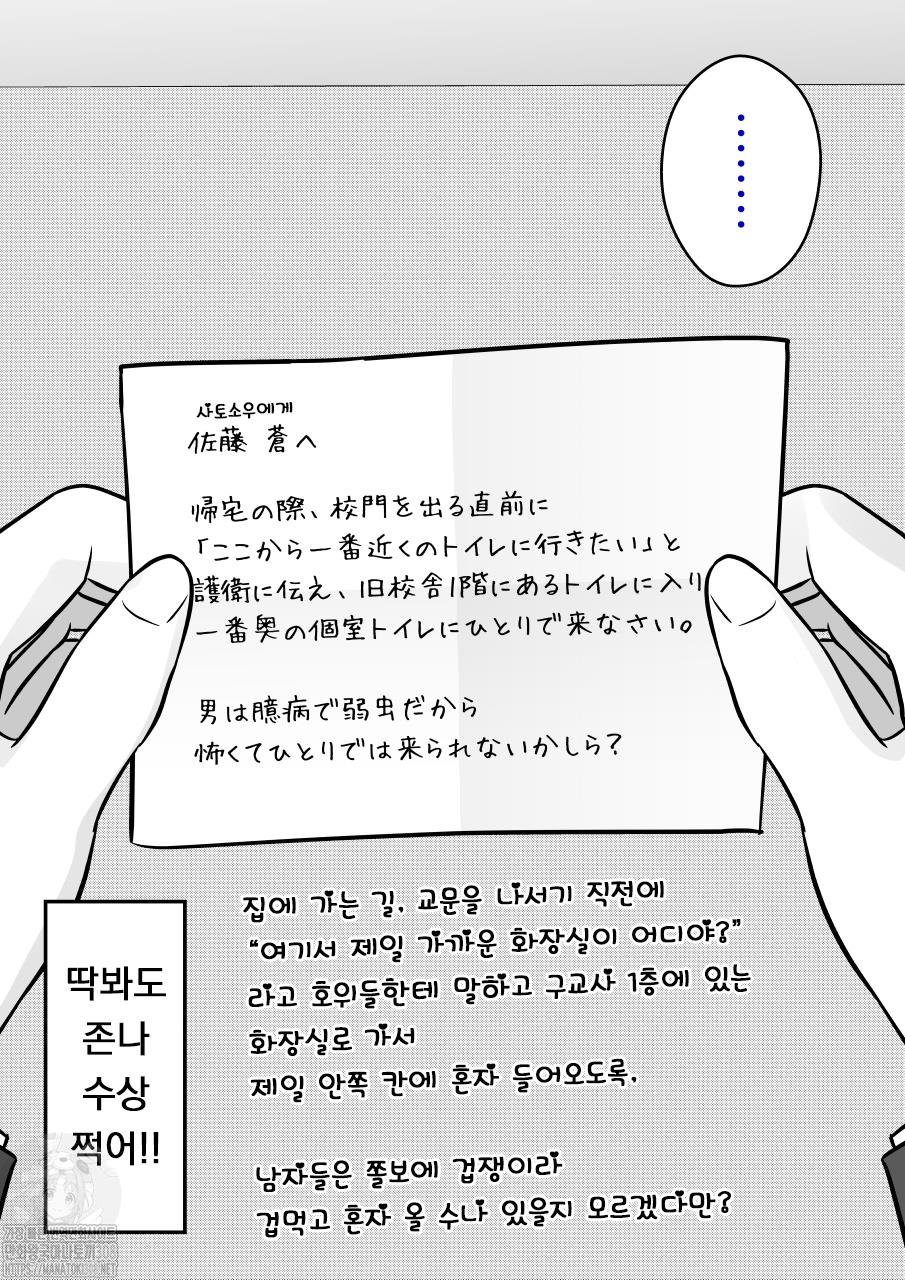 사토소우에게
佐藤 蒼へ
帰宅の際、校門を出る直前に
「ここから一番近くのトイレに行きたい」と
護衛に伝え、旧校舎1階にあるトイレに入り
一番奥の個室トイレにひとりで来なさい。
男は臆病で弱虫だから
怖くてひとりでは来られないかしら?
집에 가는 길, 교문을 나서기 직전에
“여기서 제일 가까운 화장실이 어디야?”
라고 호위들한테 말하고 구교사 1층에 있는
화장실로 가서
제일 안쪽 칸에 혼자 들어오도록,
남자들은 쫄보에 겁쟁이라
겁먹고 혼자 올 수나 있을지 모르겠다만?
딱봐도
존나
수상
쩍어!!
만화왕국마나토끼308
HTTPS://MANATOKI308.NET